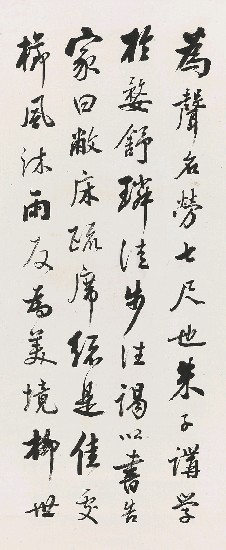 為聲名勞七尺也朱子講学
於婺舒璘徒步往謁以書告
家曰敝床疏席總是佳處
櫛風沐雨反為美境柳世